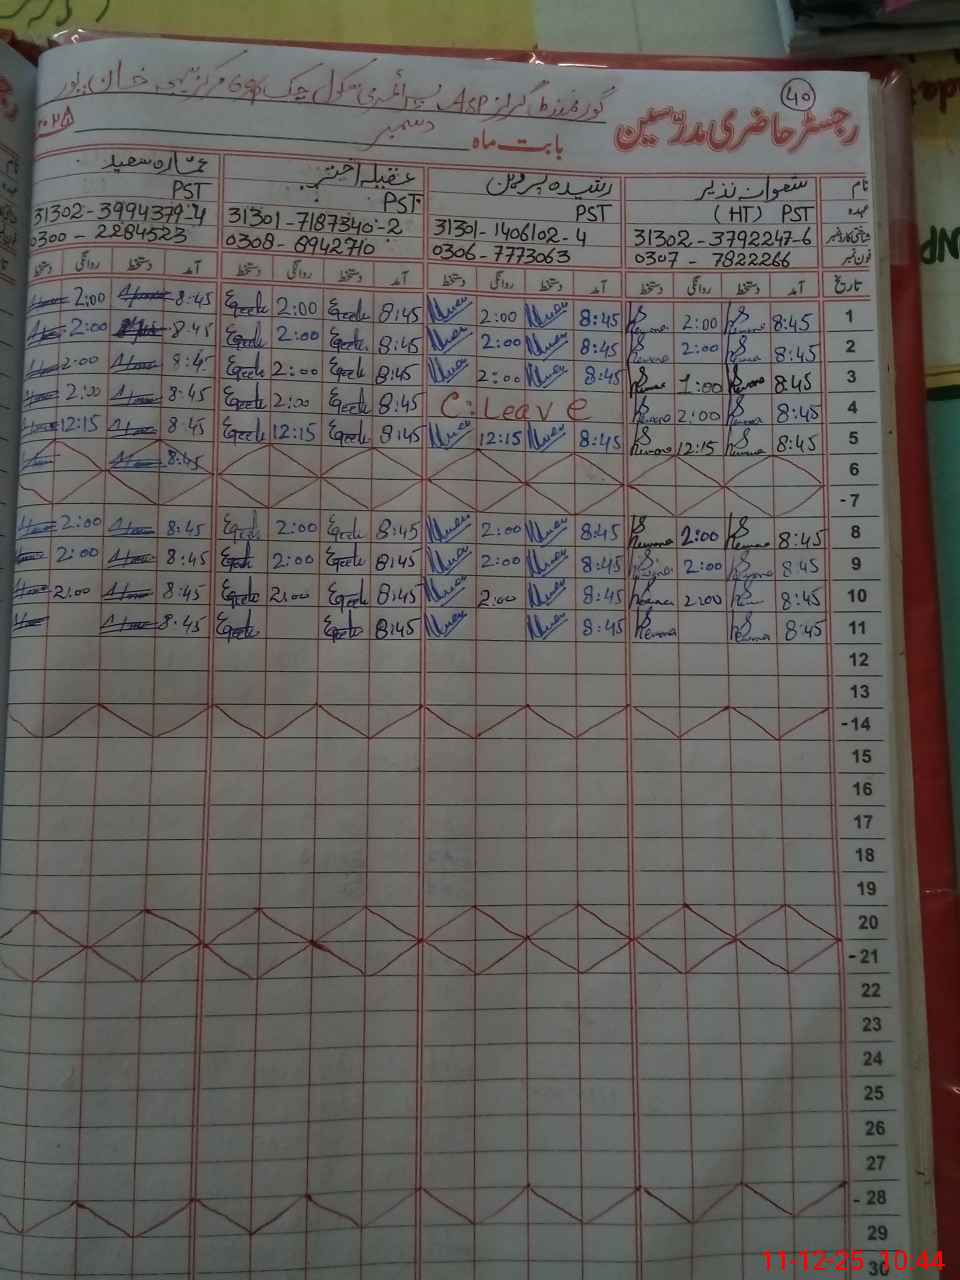 40
گورنمنٹ گرلز ASP پرائمری سکول چک 69/P مرکز
رجسٹر حاضری مدرّسین
بابت ماہ دسمبر ۲۰۲۵
نام رشیدہ پروین عقیلہ اختر عمارہ سعید
عہدہ PST (HT) PST PST PST
شناختی کارڈ نمبر 31302-3792247-6 31301-1406102-4 31301-7187340-2 31302-3994379-4
فون نمبر 0307-7822266 0306-7773063 0308-8942710 0300-2284523
تاریخ آمد دستخط روانگی دستخط آمد دستخط روانگی دستخط آمد دستخط روانگی دستخط آمد دستخط روانگی دستخط
1 8:45 2:00 8:45 2:00 8:45 2:00 8:45 2:00
2 8:45 2:00 8:45 2:00 8:45 2:00 8:45 2:00
3 8:45 1:00 8:45 2:00 8:45 2:00 8:45 2:00
4 8:45 2:00 C:Leave 8:45 2:00 8:45 2:00
5 8:45 12:15 8:45 12:15 8:45 12:15 8:45 12:15
6 8:45
-7
8 8:45 2:00 8:45 2:00 8:45 2:00 8:45 2:00
9 8:45 2:00 8:45 2:00 8:45 2:00 8:45 2:00
10 8:45 2:00 8:45 2:00 8:45 2:00 8:45 2:00
11 8:45 8:45 8:45 8:45
12
13
-14
15
16
17
18
19
20
-21
22
23
24
25
26
27
-28
29
30
11-12-25 10:44